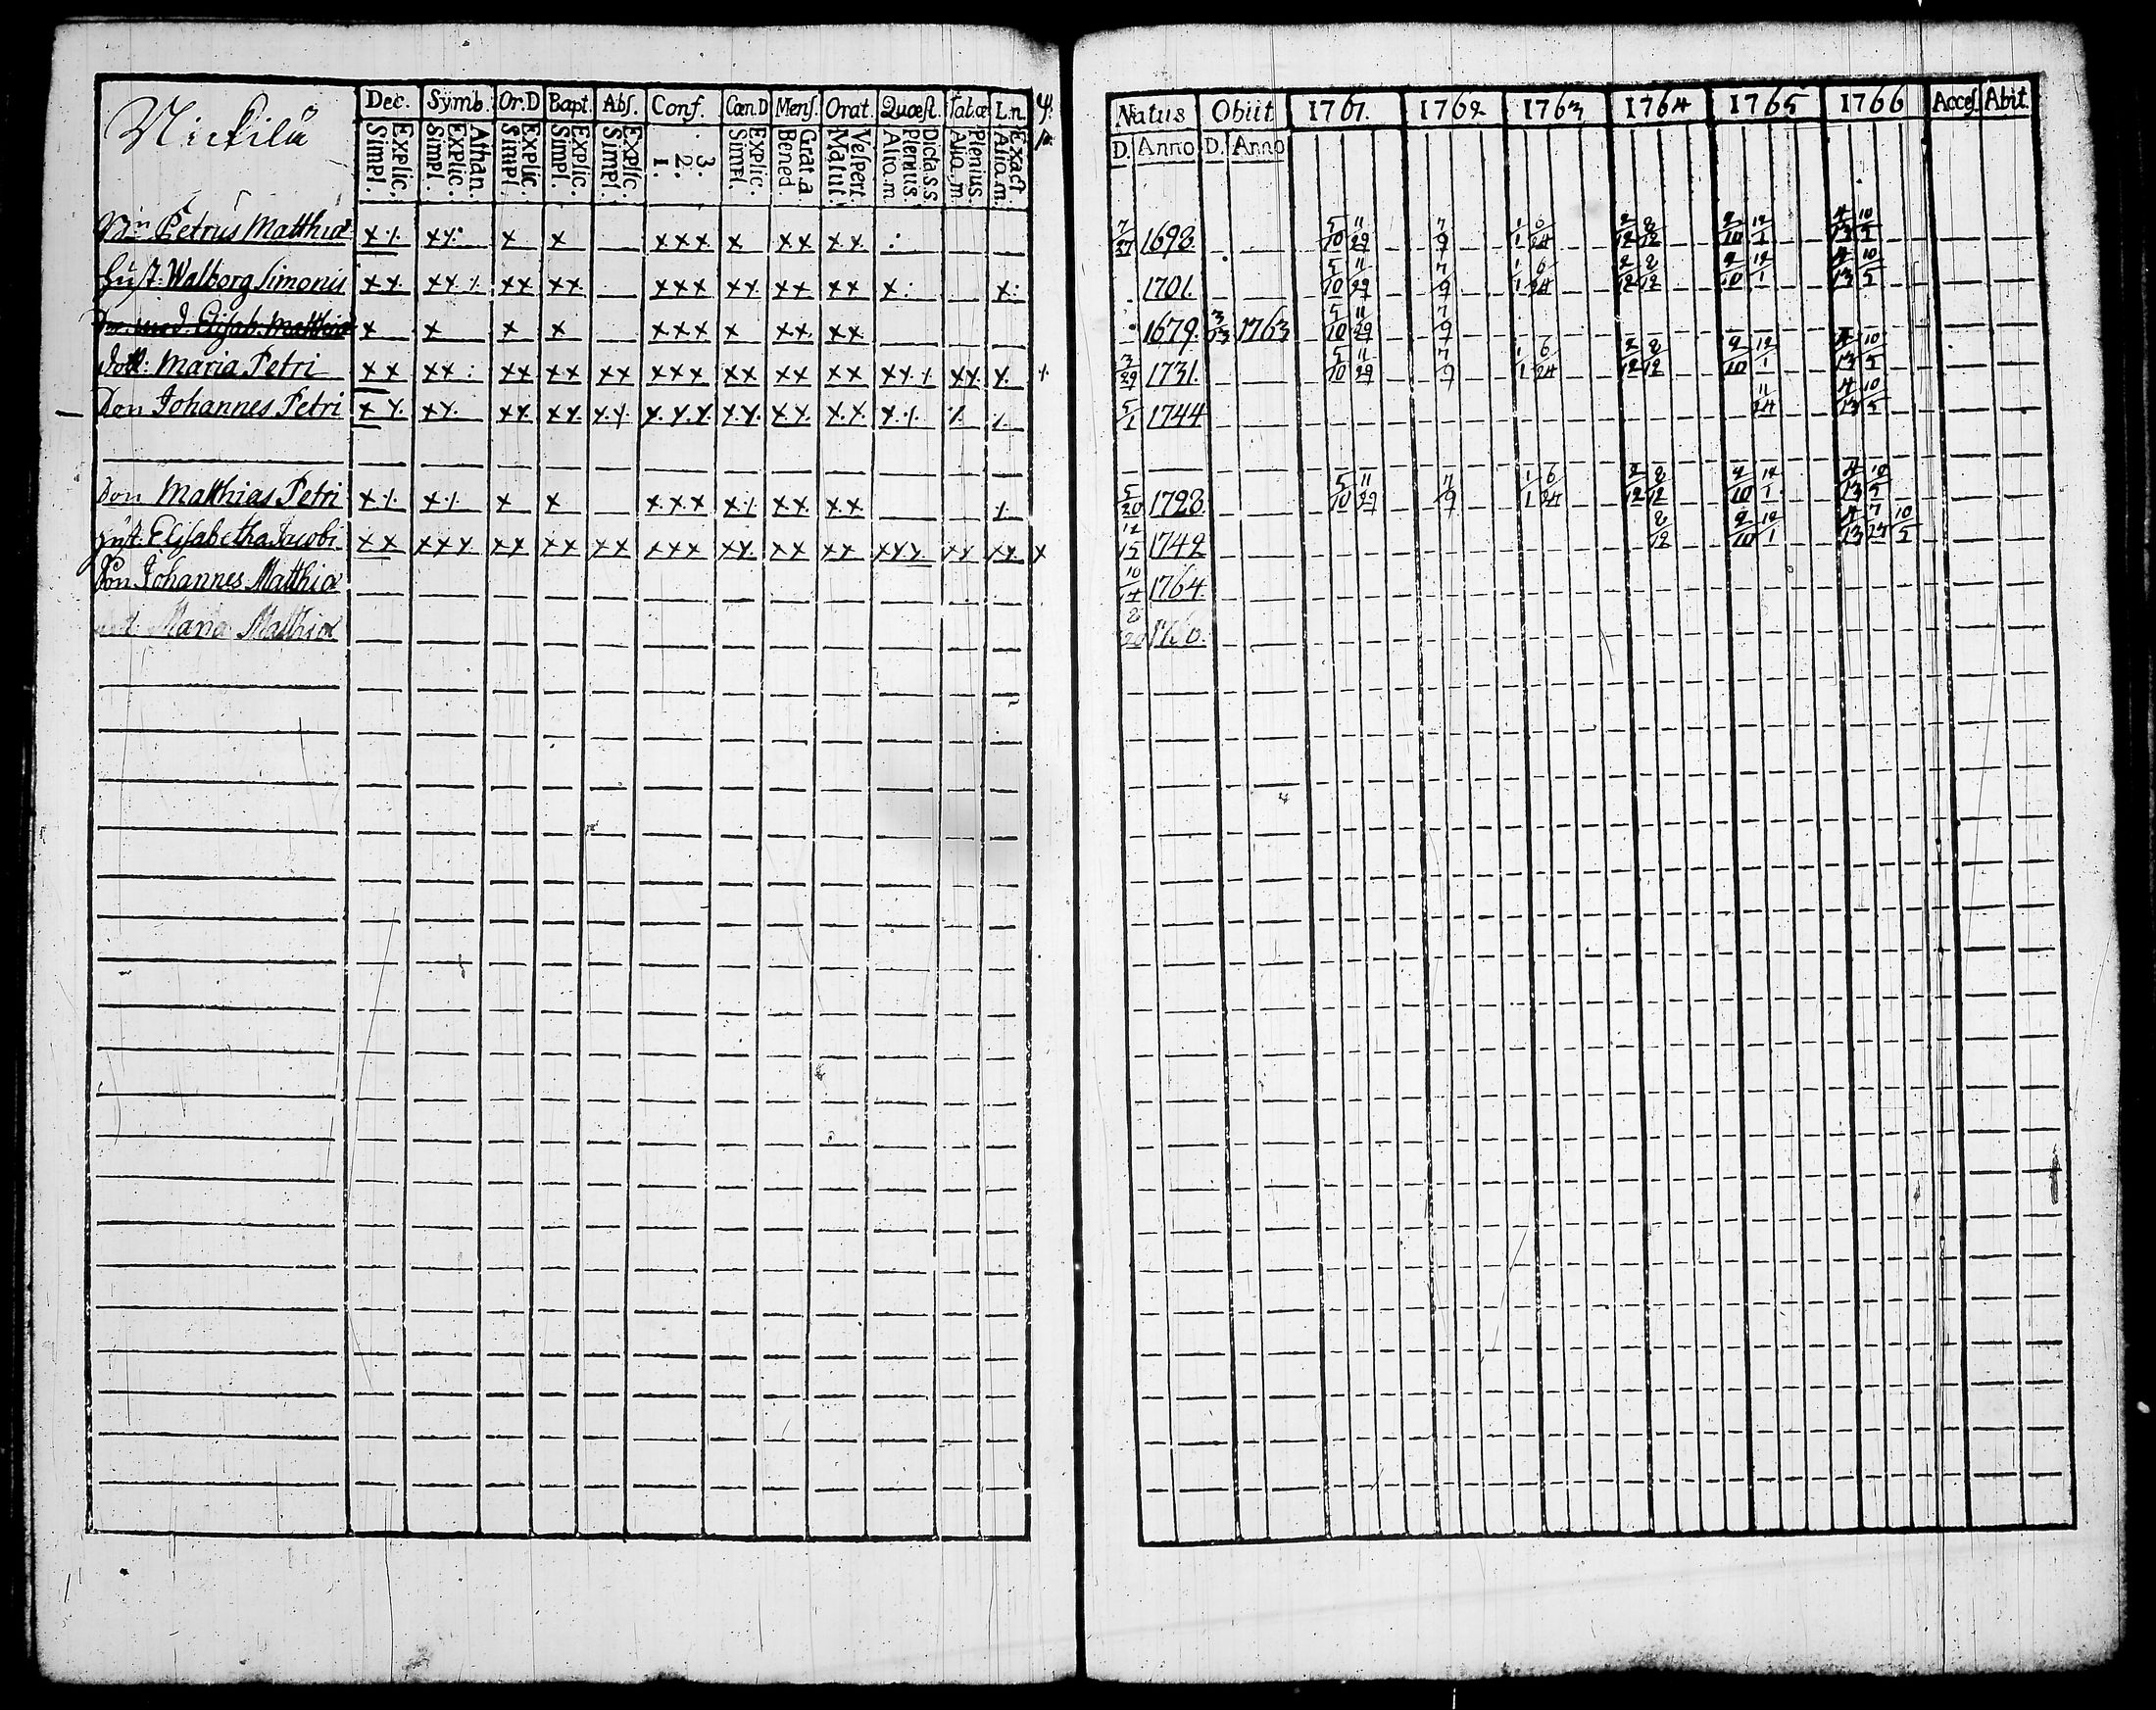 Mickilä
Dec. Symb. Or.D Bapt. Abs. Conf. Cœn.D Mens. Orat. Quæst. Tabæ L.n.
Explic. Simpl. Athan. Explic. Simpl. Explic. Simpl. Explic. Simpl. Explic. Simpl. 3. 2. 1. Explic. Simpl. Grat.a Bened Vespert. Matut. Dicta.s.s Plenius. Alia.m Plenius. Alia.m. Exact. Alia.m.
Natus Obiit 1761. 1762 1763 1764 1765 1766 Acces Abit.
D. Anno D. Anno
Petrus Matthiæ x x x x x x x x x x x x 7/27 1698 5/10 11/29 7/9 1/1 6/24 2/12 8/12 2/10 12/1 4/13 10/5
Hust. Walborg Simonis 1701. 5/10 11/29 7/9 1/1 6/24 2/12 8/12 2/10 12/1 4/13 10/5
Elisab. Matthiæ x x x x x x x x x x x x 1679. 3/13 1763 5/10 11/29 7/9
dott: Maria Petri 3/29 1731. 5/10 11/29 7/9 1/1 6/24 2/12 8/12 2/10 12/1 4/13 10/5
Son Johannes Petri 5/1 1744 11/24 4/13 10/5
Son Matthias Petri 5/20 1728 5/10 11/29 7/9 1/1 6/24 2/12 8/12 2/10 12/1 4/13 10/5
Hust. Elisabetha Jacobi 12/15 1742 8/12 2/10 12/1 4/13 7/27 10/5
Son Johannes Matthiæ 1764
Maria Matthiæ